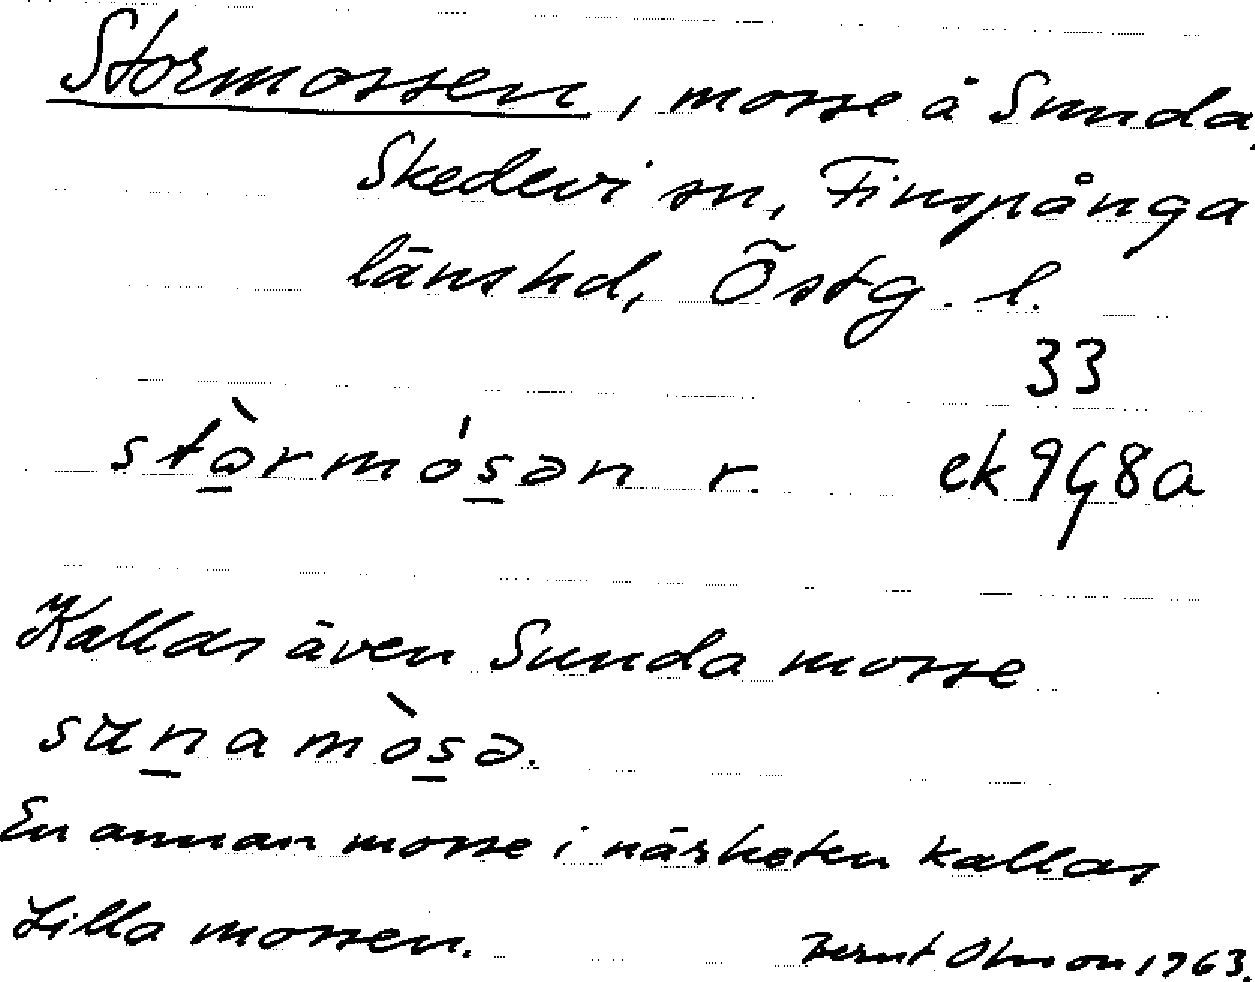 Stormossen, mosse å Sunda,
Skedevi sn, Finspånga
länshd, Östg. l.
33
stòrmósən r. ek 9G8a
Kallas även Sunda mosse
sunamòsə.
En annan mosse i närheten kallas
Lilla mossen. Bernt Olsson 1963.